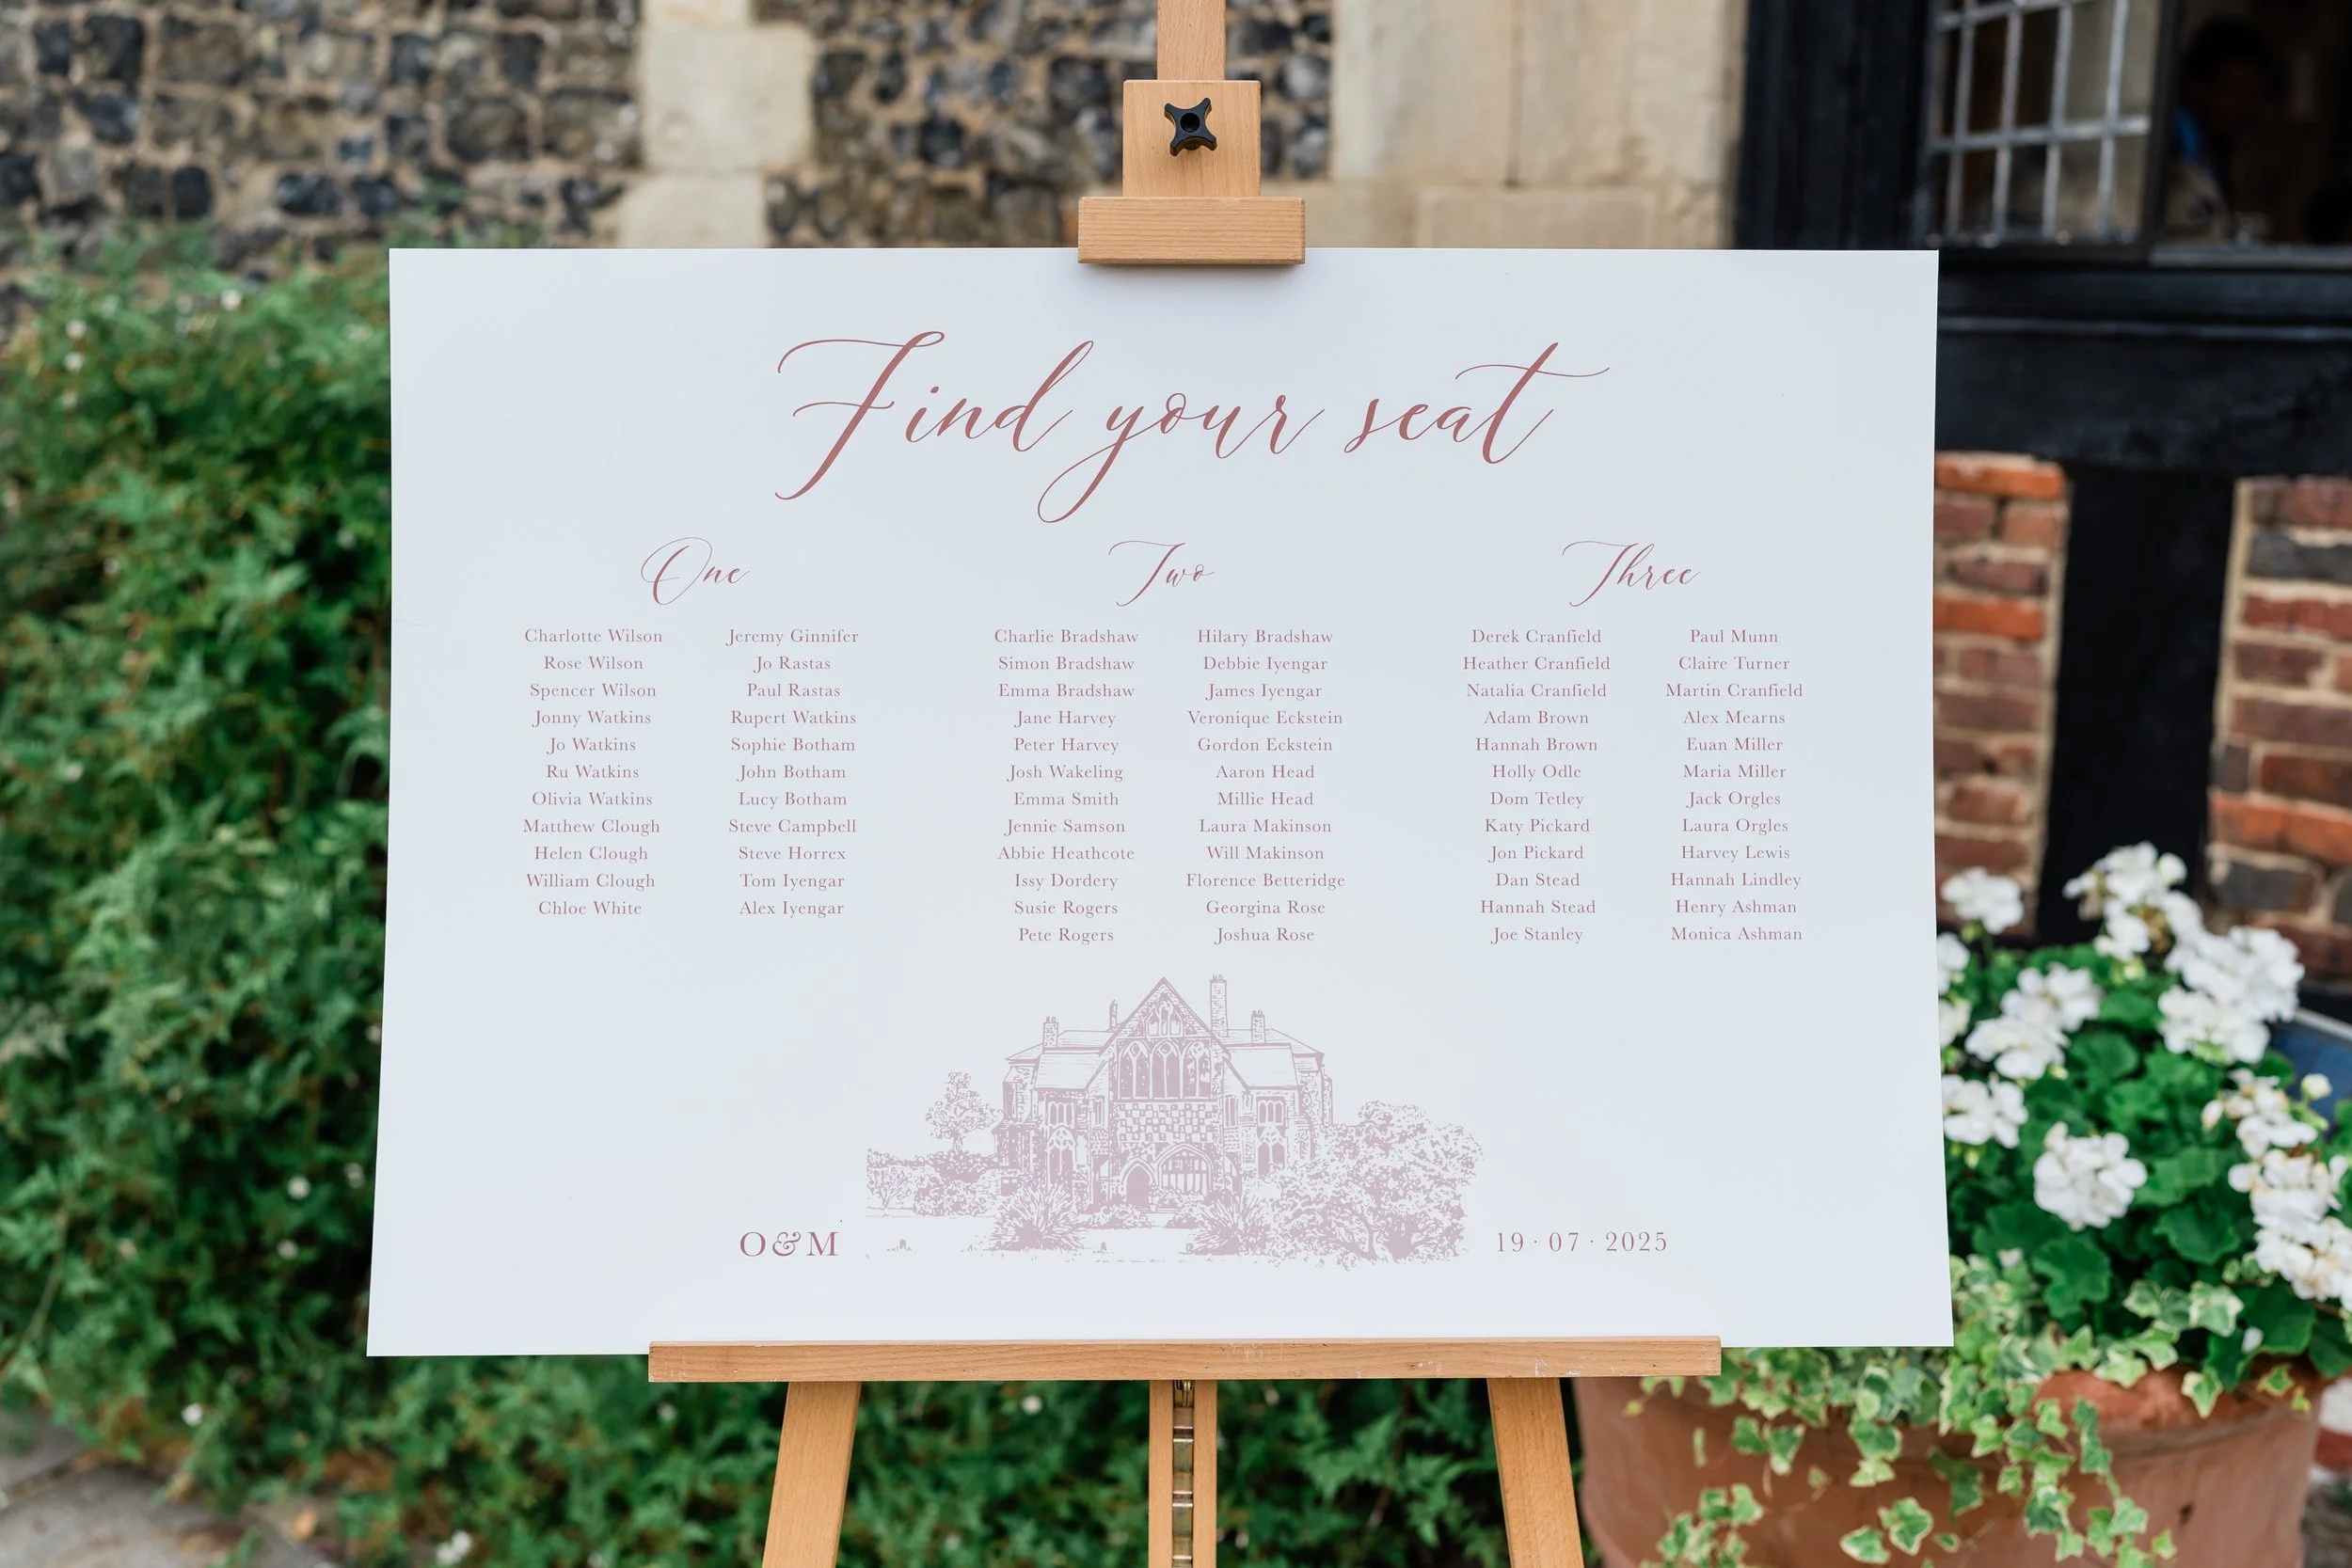 Find your seat
One
Charlotte Wilson
Rose Wilson
Spencer Wilson
Jonny Watkins
Jo Watkins
Ru Watkins
Olivia Watkins
Matthew Clough
Helen Clough
William Clough
Chloe White
Jeremy Ginnifer
Jo Rastas
Paul Rastas
Rupert Watkins
Sophie Botham
John Botham
Lucy Botham
Steve Campbell
Steve Horrex
Tom Iyengar
Alex Iyengar
Two
Charlie Bradshaw
Simon Bradshaw
Emma Bradshaw
Jane Harvey
Peter Harvey
Josh Wakeling
Emma Smith
Jennie Samson
Abbie Heathcote
Issy Dordery
Susie Rogers
Pete Rogers
Hilary Bradshaw
Debbie Iyengar
James Iyengar
Veronique Eckstein
Gordon Eckstein
Aaron Head
Millie Head
Laura Makinson
Will Makinson
Florence Betteridge
Georgina Rose
Joshua Rose
Three
Derek Cranfield
Heather Cranfield
Natalia Cranfield
Adam Brown
Hannah Brown
Holly Odle
Dom Tetley
Katy Pickard
Jon Pickard
Dan Stead
Hannah Stead
Joe Stanley
Paul Munn
Claire Turner
Martin Cranfield
Alex Mearns
Euan Miller
Maria Miller
Jack Orgles
Laura Orgles
Harvey Lewis
Hannah Lindley
Henry Ashman
Monica Ashman
O&M
19 · 07 · 2025